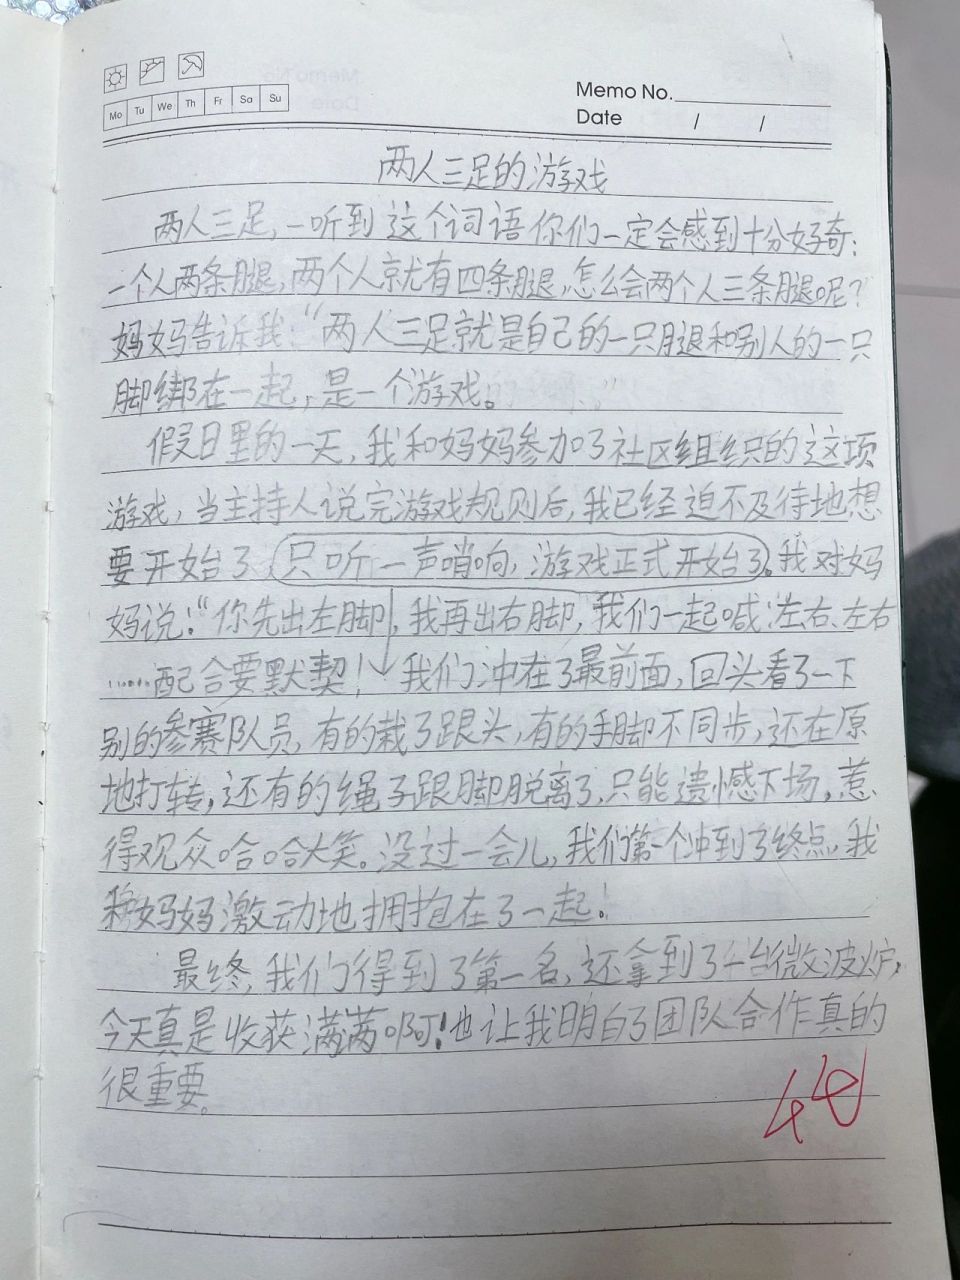 Memo No.
Mo Tu We Th Fr Sa Su
Date / /
两人三足的游戏
两人三足,一听到这个词语你们一定会感到十分好奇:
一个人两条腿,两个人就有四条腿,怎么会两个人三条腿呢?
妈妈告诉我:“两人三足就是自己的一只腿和别人的一只
脚绑在一起,是一个游戏。”
假日里的一天,我和妈妈参加了社区组织的这项
游戏,当主持人说完游戏规则后,我已经迫不及待地想
要开始了 只听一声哨响,游戏正式开始了。我对妈
妈说:“你先出左脚,我再出右脚,我们一起喊:左右、左右
……配合要默契! 我们冲在了最前面,回头看了一下
别的参赛队员,有的栽了跟头,有的手脚不同步,还在原
地打转,还有的绳子跟脚脱离了,只能遗憾下场,惹
得观众哈哈大笑。没过一会儿,我们第一个冲到了终点,我
和妈妈激动地拥抱在了一起!
最终,我们得到了第一名,还拿到了一台微波炉,
今天真是收获满满啊!也让我明白了团队合作真的
很重要。